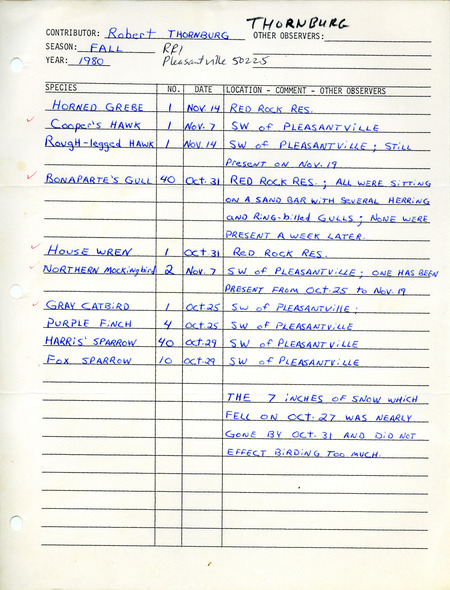 THORNBURG
CONTRIBUTOR: Robert THORNBURG OTHER OBSERVERS:
SEASON: FALL RR1
YEAR: 1980 Pleasantville 50225
SPECIES NO. DATE LOCATION - COMMENT - OTHER OBSERVERS
HORNED GREBE 1 NOV. 14 RED ROCK RES.
Cooper's HAWK 1 Nov. 7 SW of PLEASANTVILLE
RougH-legged HAWK 1 Nov 14 SW of PLEASANTVILLE; STILL
PRESENT ON NOV. 19
BONAPARTE'S GULL 40 Oct. 31 RED ROCK RES.; ALL WERE SITTING
ON A SAND BAR WITH SEVERAL HERRING
AND RING-billed GULLS; NONE WERE
PRESENT A WEEK LATER.
HOUSE WREN 1 Oct 31 RED ROCK RES.
NORTHERN Mockingbird 2 Nov. 7 SW of PLEASANTVILLE; ONE HAS BEEN
PRESENT FROM OCT. 25 to Nov. 19
GRAY CATBIRD 1 Oct. 25 SW of PLEASANTVILLE;
PURPLE FINCH 4 Oct. 25 SW of PLEASANTVILLE
HARRIS' SPARROW 40 Oct. 29 SW of PLEASANTVILLE
FOX SPARROW 10 Oct. 29 SW of PLEASANTVILLE
THE 7 INCHES OF SNOW WHICH
FELL ON OCT. 27 WAS NEARLY
GONE BY OCT. 31 AND DID NOT
EFFECT BIRDING TOO MUCH.